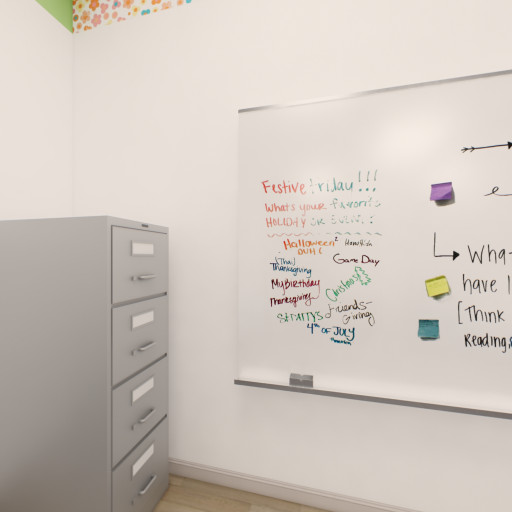 Festive Friday!!!
What's your favorite
HOLIDAY OR EVENT:
Halloween
Game Day
(Thai)
Thanksgiving
My Birthday
Christmas
Thanksgiving
Friends-
giving
ST PATTYS
4th OF JULY
What
have I
[Think
Reading,